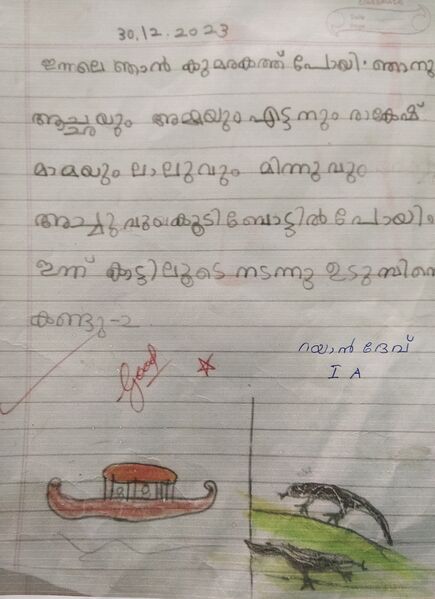 30.12.2023
ഇന്നലെ ഞാൻ കുമരകത്ത് പോയി. ഞാനു
അച്ഛയും അമ്മയും ഏട്ടനും രാകേഷ്
മാമയും ലാലുവും മിന്നുവും
അച്ചുവുംകൂടി ബോട്ടിൽ പോയി.
ഇന്ന് കാട്ടിലൂടെ നടന്നു ഉടുമ്പിനെ
കണ്ടു-2
Good
റയാൻ ദേവ്
I A